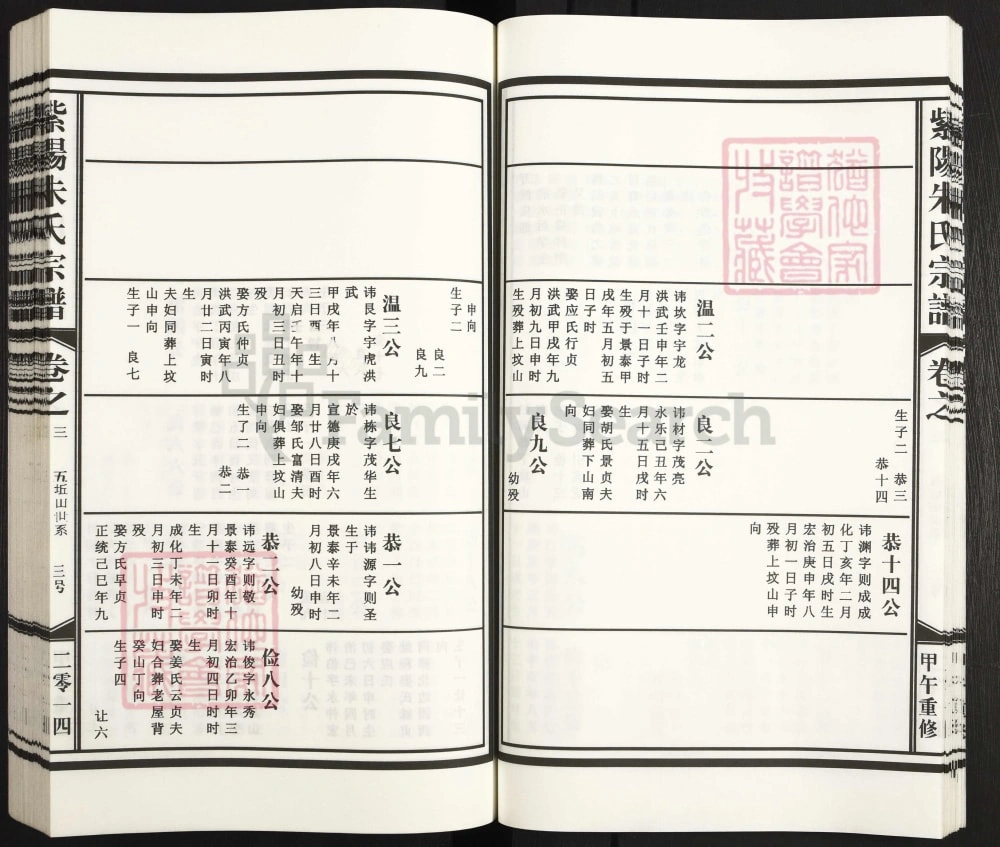 紫陽朱氏宗譜
卷之
甲午重修
生子二 恭三
恭十四
恭十四公
讳渊字则成成
化丁亥年二月
初五日戌时生
宏治庚申年八
月初一日子时
殁葬上坟山申
向
温二公
讳坎字宇龙
洪武壬申年二
月十一日子时
生殁于景泰甲
戌年五月初五
日子时
娶应氏行贞
洪武甲戌年九
月初九日申时
生殁葬上坟山
良二公
讳材字茂亮
永乐己丑年六
月十五日戌时
生
娶胡氏景贞夫
妇同葬下山南
向
良九公
幼殁
申向
生子二
良二
良九
温三公
讳艮字宇虎洪
武
甲戌年八月十
三日酉 生
天启壬午年十
月初三日丑时
殁
娶方氏仲贞
洪武丙寅年八
月廿二日寅时
生
夫妇同葬上坟
山申向
生子一 良七
良七公
讳栋字茂华生
於
宣德庚戌年六
月廿八日酉时
娶邹氏富清夫
妇俱葬上坟山
申向
生了二 恭一
恭二
恭一公
讳讳源字则圣
生于
景泰辛未年二
月初八日申时
幼殁
恭二公
讳远字则敬
景泰癸酉年十
月十一日卯时
生
成化丁未年二
月初三日申时
殁
娶方氏早贞
正统己巳年九
俭八公
讳俊字永秀
宏治乙卯年三
月初四日时时
生
娶姜氏云贞夫
妇合葬老屋背
癸山丁向
生子四
让六
紫陽朱氏宗譜
卷之
三
五坵山世系
三号
二零一四
FamilySearch